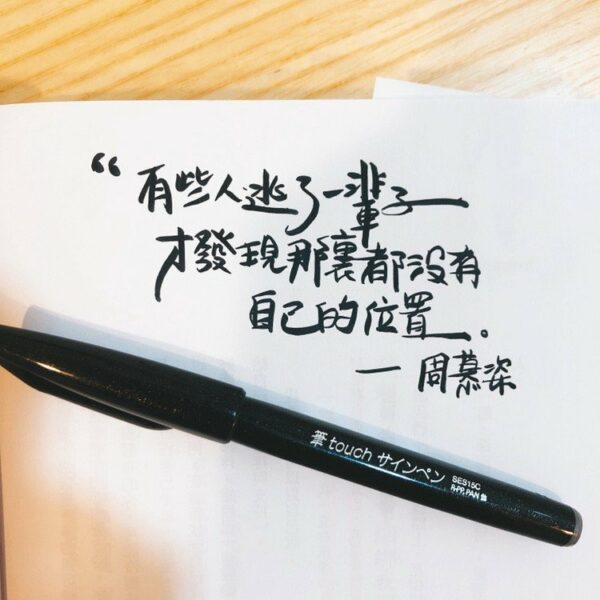 “有些人逃了一輩子
才發現那裏都没有
自己的位置。
— 周慕姿
筆touch サインペン
SES15C
P.PP, PAN